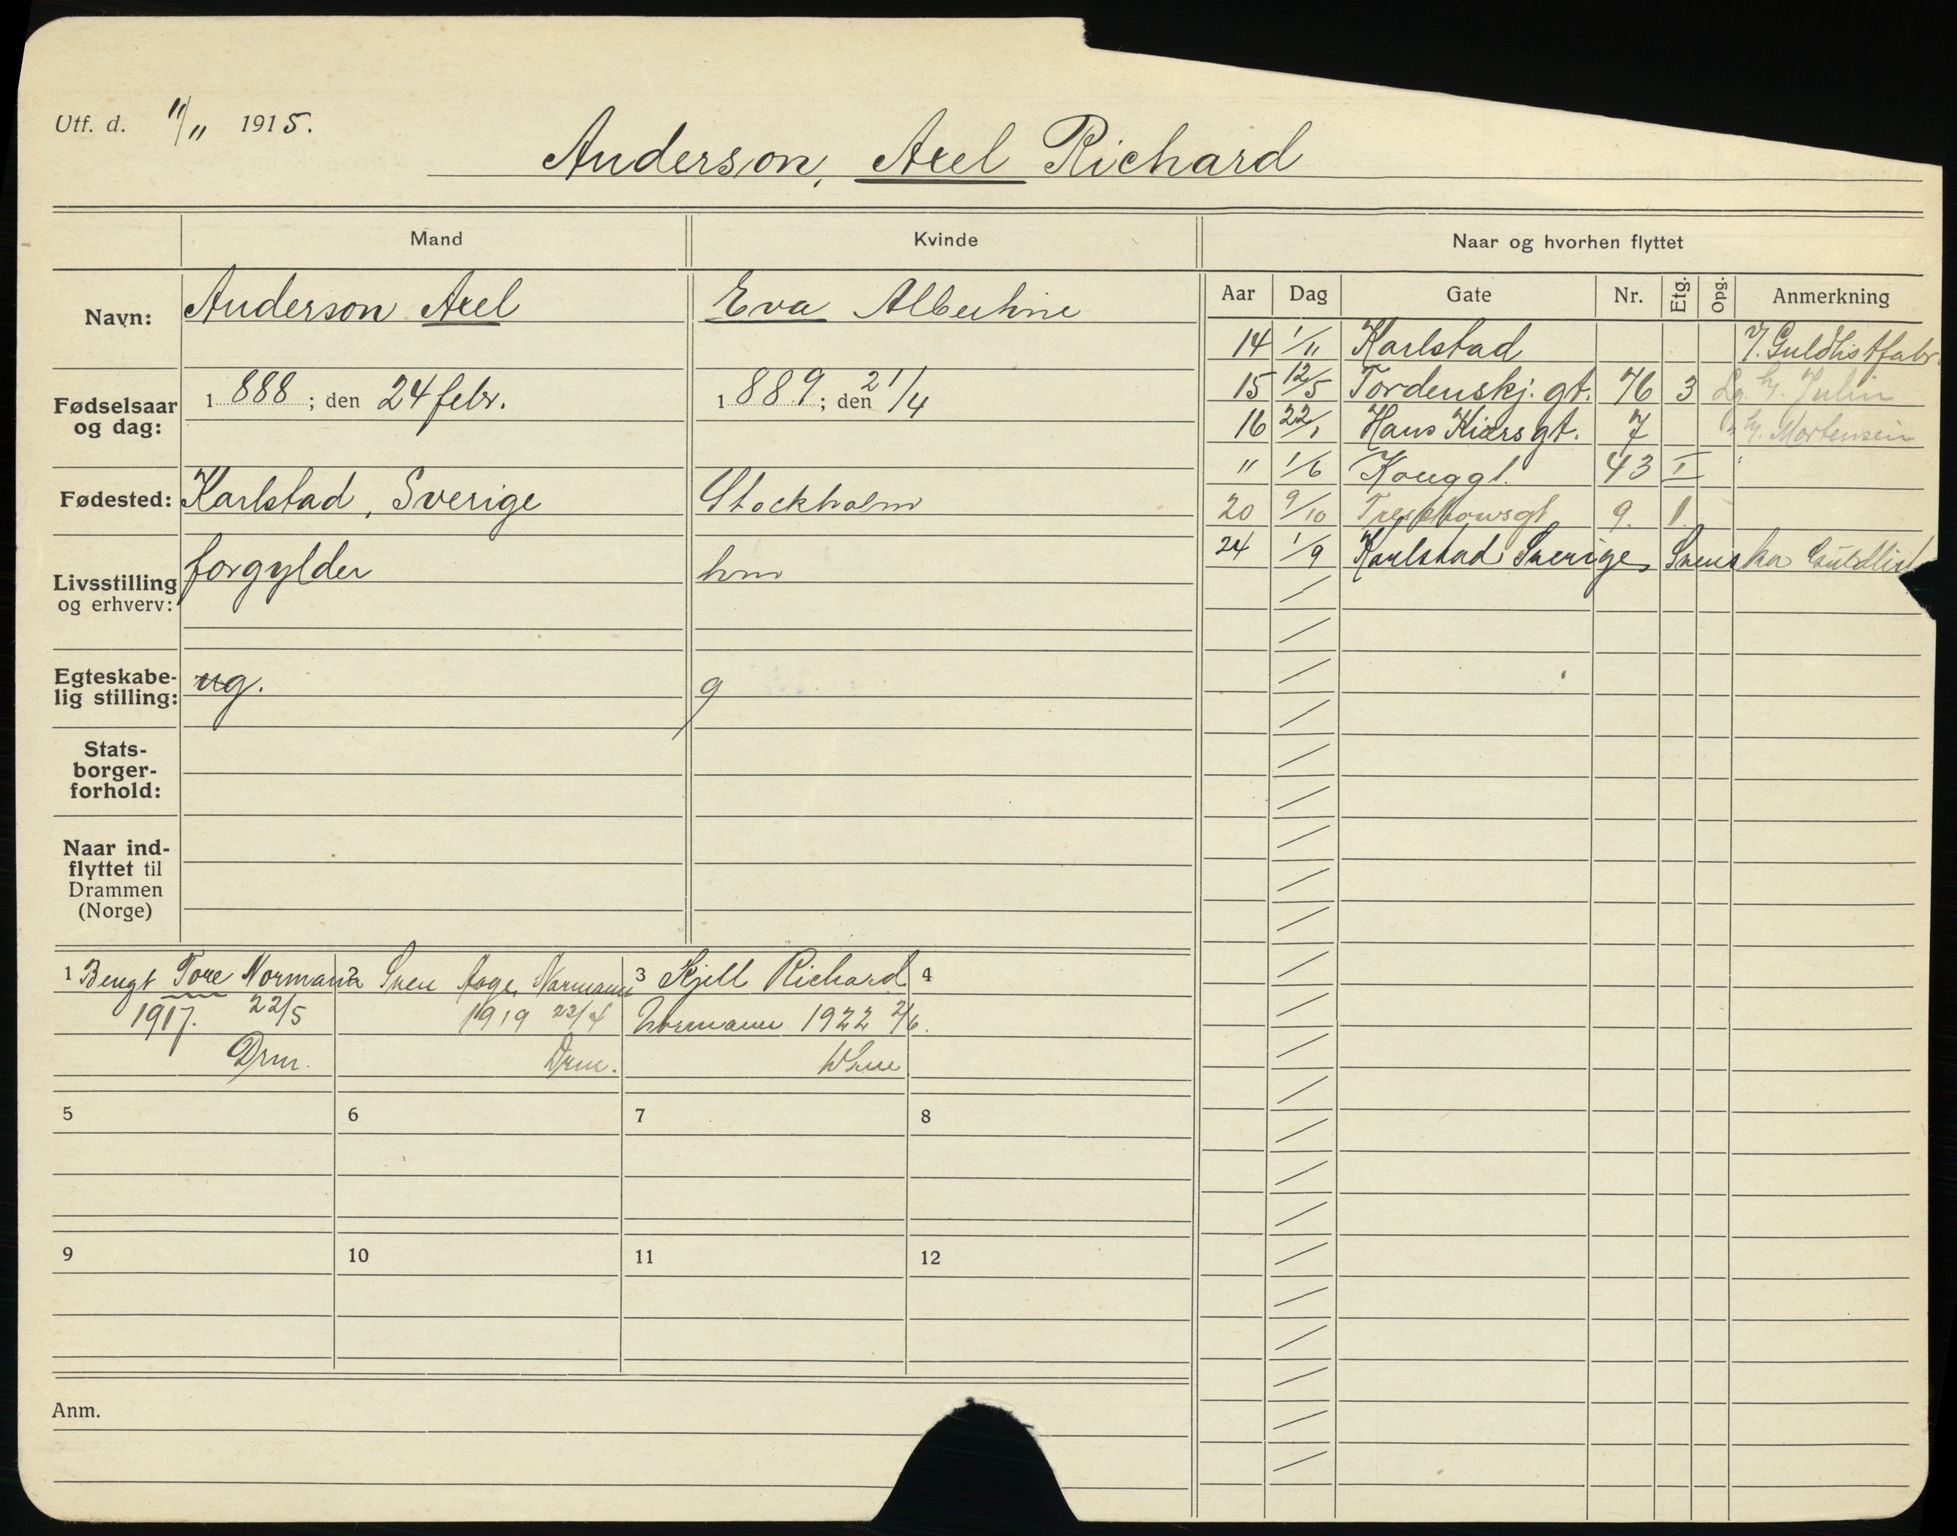 Utf. d. 11/11 1915.
Anderson, Axel Richard
Mand Kvinde Naar og hvorhen flyttet
Navn: Anderson Axel Eva Albertine
Aar Dag Gate Nr. Etg. Opg. Anmerkning
14 1/11 Karlstad V. Guldlistfabr.
Fødselsaar og dag: 1 888 ; den 24 febr. 1 889 ; den 21/4
15 12/5 Tordenskj. gt. 76 3 Lg. h/. Julin
16 22/1 Hans Kiærs gt. 7 " h/. Mortensen
" 1/6 Konggt. 43 I "
Fødested: Karlstad, Sverige Stockholm
20 9/10 Treschowsgt 9. 1.
24 1/9 Karlstad Sverige, Svenska Guldlist
Livsstilling og erhverv: forgylder hm
Egteskabe-
lig stilling: ug. g
Stats-
borger-
forhold:
Naar ind-
flyttet til
Drammen
(Norge)
1 Bengt Tore Normann 2 Sven Aage Normann 3 Kjell Richard 4
1917. 22/5 1919 22/4 Normann 1922 2/6.
Drm. Drm.
5 6 7 8
9 10 11 12
Anm.